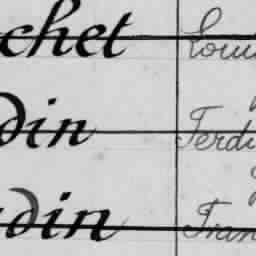 chet Loui
din Ferdi
din Fran